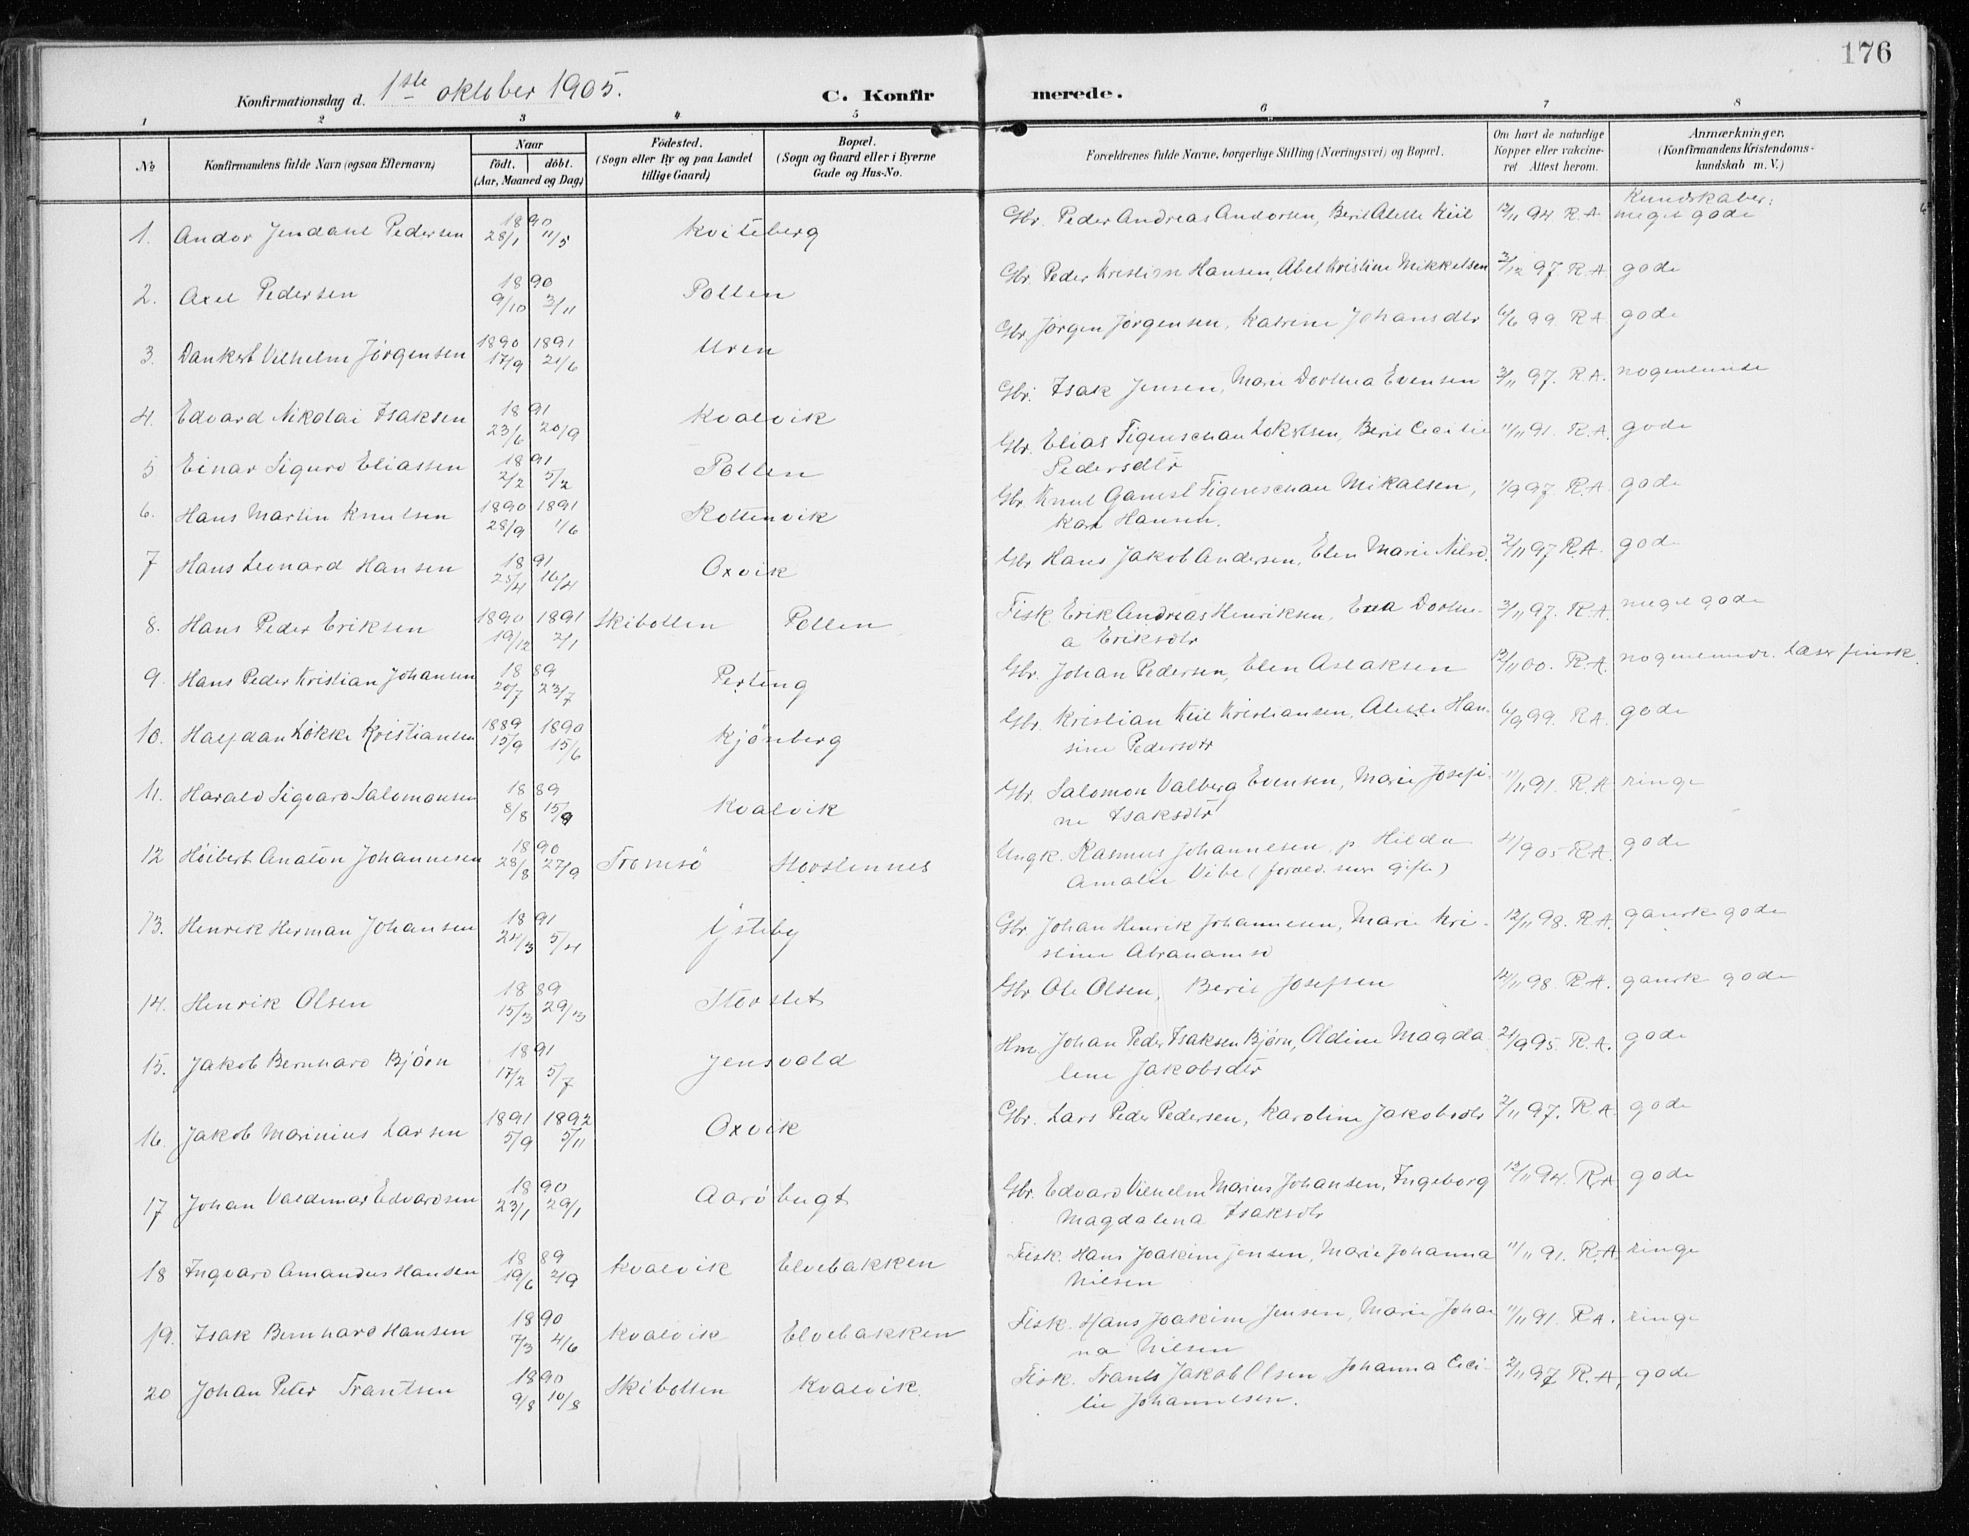 176
Konfirmationsdag d. 1ste oktober 1905. C. Konfirmerede.
1 2 3 4 5 6 7 8
No Konfirmandens fulde Navn (ogsaa Efternavn) Naar født, døbt. (Aar, Maaned og Dag) Fødested. (Sogn eller By og paa Landet tillige Gaard) Bopæl. (Sogn og Gaard eller i Byerne Gade og Hus-No. Forældrenes fulde Navne, borgerlige Stilling (Næringsvei) og Bopæl. Om havt de naturlige Kopper eller vaccineret Attest herom. Anmærkninger. (Konfirmandens Kristendomskundskab m. V.)
Kundskaber:
1. Andor Pedersen 1890 28/1 11/5 Kviteberg Gbr. Peder Andreas Andorsen, Berit Alette Kiil 12/11 94 R.A. meget gode
2. Axel Pedersen 1890 9/10 3/11 Pollen Gbr. Peder Kristian Hansen, Abel Kristine Mikkelsen 3/12 97 R.A. gode
3. Dankert Vilhelm Jørgensen 1890 17/9 1891 21/6 Uren Gbr. Jørgen Jørgensen, Katrine Johansdtr 6/6 99. R.A. gode
4. Edvard Nikolai Isaksen 1891 23/6 20/9 Kvalvik Gbr. Isak Jensen, Marie Dorthea Evensen 3/11 97. R.A. nogenlunde
5 Einar Sigurd Eliassen 1891 2/2 5/2 Pollen Gbr. Elias Figenschau Berit Cecilie
Pedersdtr 11/11 91. R.A. gode
6. Hans Martin Knutsen 1890 28/9 1891 1/6 Kottenvik Gbr. Knut Gamst Figenschau Mikalsen,
Hansen. 1/9 97. R.A. gode
7 Hans Leonard Hansen 1891 25/4 16/4 Oxvik Gbr Hans Jakob Andersen, Elen Marie Nilsd. 2/11 97 R.A. gode
8. Hans Peder Eriksen 1890 19/12 1891 2/1 Skibotten Pollen Fisk. Erik Andreas Henriksen, Dorthe-
a Eriksdtr 3/11 97. R.A. meget gode
9. Hans Peder Kristian Johansen 1889 20/7 23/7 Gbr. Johan Pedersen, Elen Aslaksen 12/11 00. R.A. nogenlunde. Læser finsk.
10. Halfdan Løkke Kristiansen 1889 15/9 1890 15/6 Kjønberg Gbr. Kristian Kiil Kristiansen, Alette Han-
sine Pedersdtr 6/9 99. R.A. gode
11. Harald Sigvard Salomonsen 1889 8/8 15/9 Kvalvik Gbr. Salomon Valberg Evensen, Marie Josefi-
ne Isaksdtr 11/11 91. R.A. ringe
12 Høibert Anaton Johannesen 1890 28/8 27/9 Tromsø Storslennes Ungk. Rasmus Johannesen, p. Hilda
Amalie Vibe (foræld. senere gifte) 21/9 05 R.A. gode
13. Henrik Herman Johansen 1891 24/3 5/4 Ysteby Gbr Johan Henrik Johannesen, Marie Kri-
stine Abrahamsd 12/11 98. R.A. ganske gode
14. Henrik Olsen 1889 15/3 29/3 Storslet Gbr Ole Olsen, Berit Josefsen 12/11 98. R.A. ganske gode
15. Jakob Bernhard Bjørn 1891 17/2 5/7 Jensvold Hm. Johan Peder Isaksen Bjørn, Oldine Magda-
lene Jakobsdtr 21/9 95. R.A. gode
16. Jakob Marinius Larsen 1891 5/9 1892 5/11 Oxvik Gbr. Lars Peder Pedersen, Karoline Jakobsdtr 2/11 97. R.A. gode
17 Johan Valdemar Edvardsen 1890 23/1 29/1 Aarøbugt Gbr. Edvard Vilhelm Marius Johansen, Ingeborg
Magdalena Isaksdtr 12/11 94. R.A. gode
18 Ingvard Amandus Hansen 1889 19/6 2/9 Kvalvik Elvebakken Fisk. Hans Joakim Jensen, Marie Johanna
Nilsen 11/11 91. R.A. ringe
19. Isak Bernhard Hansen 1890 7/3 4/6 Kvalvik Elvebakken Fisk. Hans Joakim Jensen, Marie Johan
na Nilsen 11/11 91. R.A. ringe
20 Johan Peter Frantsen 1890 9/8 10/8 Skibotten Kvalvik. Fisk. Frants Jakob Olsen, Johanna Ceci-
lie Johannesen. 2/11 97. R.A. gode